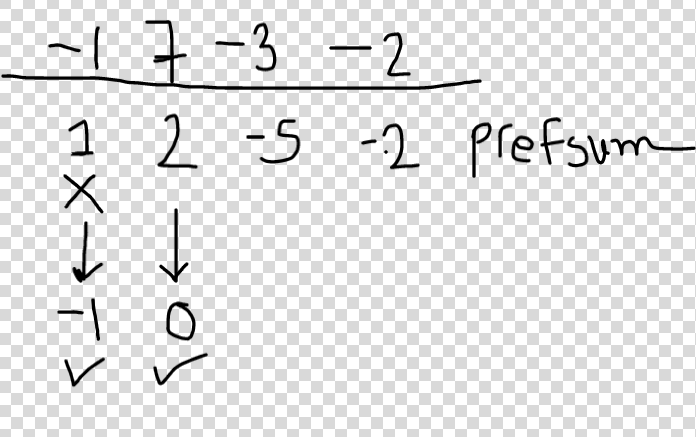 -1 7 -3 -2
1 2 -5 -2 prefsum
-1 0